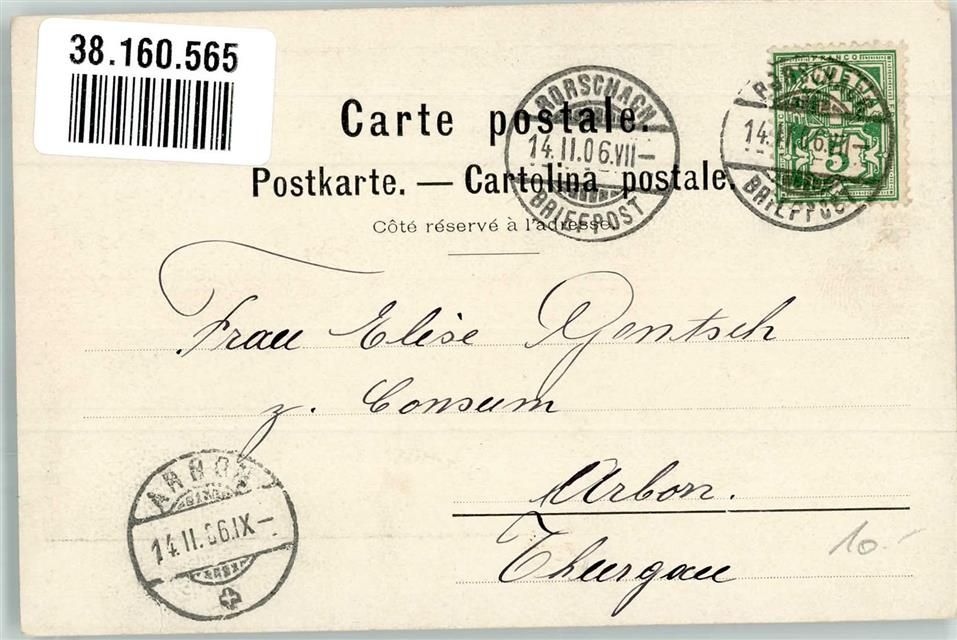 38.160.565
Carte postale.
Postkarte. — Cartolina postale.
Côté réservé à l'adresse.
RORSCHACH
14.II.06.VII—
BRIEFPOST
RORSCHACH
14.II.06.VII—
BRIEFPOST
FRANCO
5
Frau Elise
z. Consum
Arbon.
Thurgau
10.-
ARBON
14.II.06.IX—